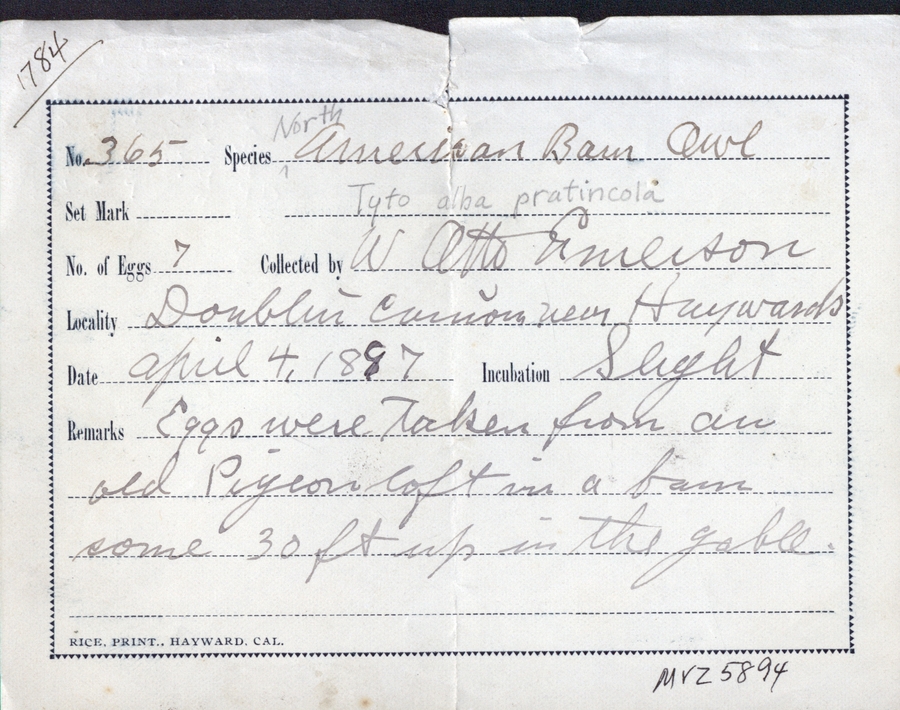 1784
North
No. 365 Species American Barn Owl
Set Mark Tyto alba pratincola
No. of Eggs 7 Collected by W Otto Emerson
Locality Doublin Canon near Haywards
Date April 4, 1897 Incubation Slight
Remarks Eggs were Taken from an
old Pigeon loft in a barn
some 30 ft up in the gable.
RICE, PRINT., HAYWARD, CAL.
MVZ 5894